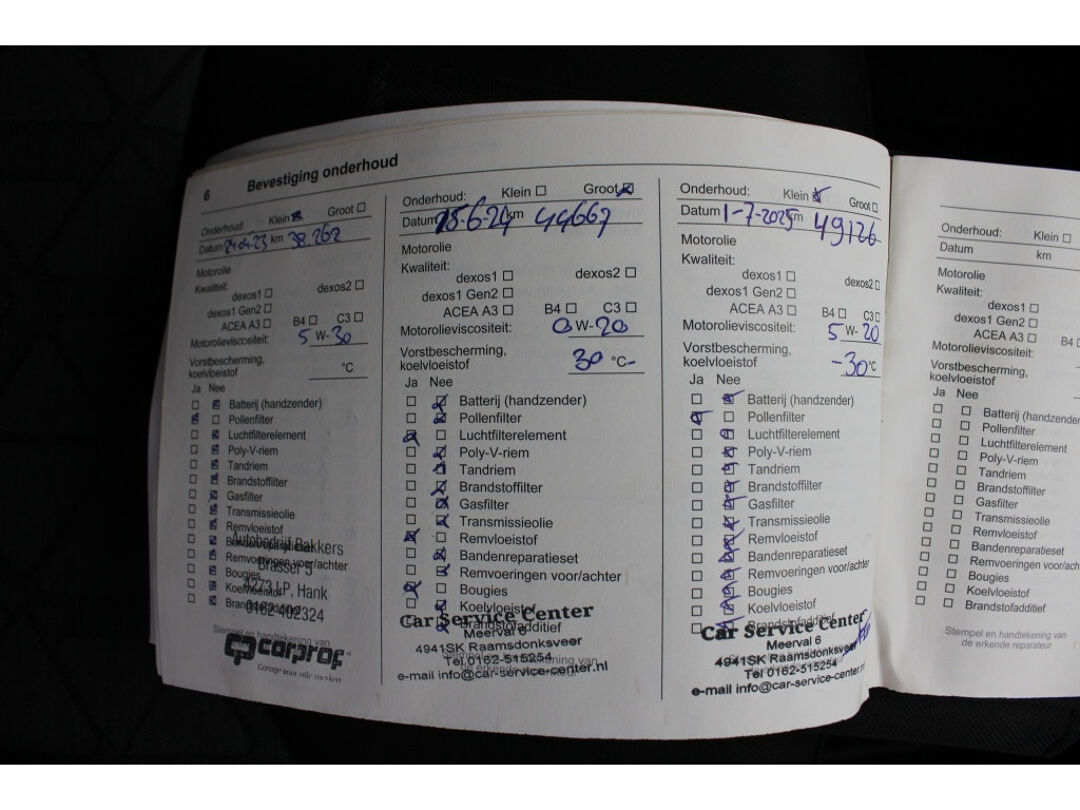 6 Bevestiging onderhoud
Onderhoud: Klein Groot
Datum 24-04-23 km 38.262
Motorolie
Kwaliteit:
dexos1 dexos2
dexos1 Gen2
ACEA A3 B4 C3
Motorolieviscositeit: 5 W- 30
Vorstbescherming,
koelvloeistof °C
Ja Nee
Batterij (handzender)
Pollenfilter
Luchtfilterelement
Poly-V-riem
Tandriem
Brandstoffilter
Gasfilter
Transmissieolie
Remvloeistof
Bandenreparatieset
Remvoeringen voor/achter
Bougies
Koelvloeistof
Brandstofadditief
Autobedrijf Bakkers
Brasser 5
4273 LP, Hank
0162-402324
Stempel en handtekening van
carprof
Garage voor alle merken
Onderhoud: Klein Groot
Datum 18-6-24 km 44667
Motorolie
Kwaliteit:
dexos1 dexos2
dexos1 Gen2
ACEA A3 B4 C3
Motorolieviscositeit: 0 W- 20
Vorstbescherming,
koelvloeistof 30 °C-
Ja Nee
Batterij (handzender)
Pollenfilter
Luchtfilterelement
Poly-V-riem
Tandriem
Brandstoffilter
Gasfilter
Transmissieolie
Remvloeistof
Bandenreparatieset
Remvoeringen voor/achter
Bougies
Koelvloeistof
Brandstofadditief
Car Service Center
Meerval 6
4941SK Raamsdonksveer
Tel.0162-515254
e-mail info@car-service-center.nl
Onderhoud: Klein Groot
Datum 1-7-2025 km 49126
Motorolie
Kwaliteit:
dexos1 dexos2
dexos1 Gen2
ACEA A3 B4 C3
Motorolieviscositeit: 5 W- 20
Vorstbescherming,
koelvloeistof -30 °C
Ja Nee
Batterij (handzender)
Pollenfilter
Luchtfilterelement
Poly-V-riem
Tandriem
Brandstoffilter
Gasfilter
Transmissieolie
Remvloeistof
Bandenreparatieset
Remvoeringen voor/achter
Bougies
Koelvloeistof
Brandstofadditief
Car Service Center
Meerval 6
4941SK Raamsdonksveer
Tel 0162-515254
e-mail info@car-service-center.nl
Onderhoud: Klein
Datum km
Motorolie
Kwaliteit:
dexos1
dexos1 Gen2
ACEA A3 B4
Motorolieviscositeit:
Vorstbescherming,
koelvloeistof
Ja Nee
Batterij (handzender
Pollenfilter
Luchtfilterelement
Poly-V-riem
Tandriem
Brandstoffilter
Gasfilter
Transmissieolie
Remvloeistof
Bandenreparatieset
Remvoeringen voor/achte
Bougies
Koelvloeistof
Brandstofadditief
Stempel en handtekening van
de erkende reparateur